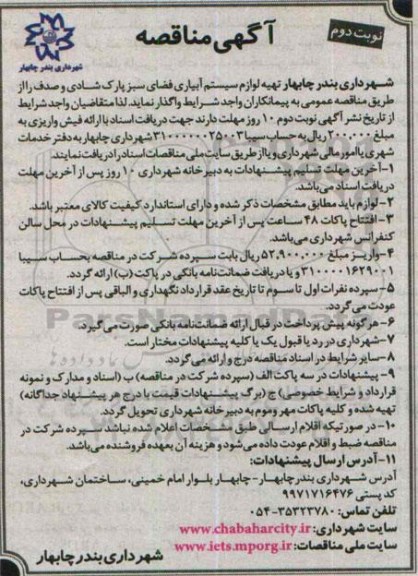 آگهی مناقصه
نوبت دوم
شهرداری بندر چابهار
شهرداری بندر چابهار تهیه لوازم سیستم آبیاری فضای سبز پارک شادی و صدف را از
طریق مناقصه عمومی به پیمانکاران واجد شرایط واگذار نماید. لذا متقاضیان واجد شرایط
از تاریخ نشر آگهی نوبت دوم ۱۰ روز مهلت دارند جهت دریافت اسناد با ارائه فیش واریزی به
مبلغ ۲۰۰.۰۰۰ ریال به حساب سیبا ۳۱۰۰۰۰۰۰۲۵۰۰۳ شهرداری چابهار به دفتر خدمات
شهری یا امور مالی شهرداری و یا از طریق سایت ملی مناقصات اسناد را دریافت نمایند.
۱-آخرین مهلت تسلیم پیشنهادات به دبیرخانه شهرداری ۱۰ روز پس از آخرین مهلت
دریافت اسناد می‌باشد.
۲-لوازم باید مطابق مشخصات ذکر شده و دارای استاندارد کیفیت کالای معتبر باشد.
۳-افتتاح پاکات ۴۸ ساعت پس از آخرین مهلت تسلیم پیشنهادات در محل سالن
کنفرانس شهرداری می‌باشد.
۴-واریز مبلغ ۵۲،۹۰۰،۰۰۰ ریال بابت سپرده شرکت در مناقصه بحساب سیبا
۳۱۰۰۰۰۱۶۲۹۰۰۱ و یا دریافت ضمانت‌نامه بانکی در پاکت (ب) ارائه گردد.
۵-سپرده نفرات اول تا سوم تا تاریخ عقد قرارداد نگهداری و الباقی پس از افتتاح پاکات
عودت می‌گردد.
۶-هرگونه پیش پرداخت در قبال ارائه ضمانت‌نامه بانکی صورت می‌گیرد.
۷-شهرداری در رد یا قبول یک یا کلیه پیشنهادات مختار است.
۸-سایر شرایط در اسناد مناقصه درج و ارائه می‌گردد.
۹- پیشنهادات در سه پاکت الف (سپرده شرکت در مناقصه) ب (اسناد و مدارک و نمونه
قرارداد و شرایط خصوصی) ج (برگ پیشنهادات قیمت با درج هر پیشنهاد جداگانه)
تهیه شده و کلیه پاکات مهر و موم به دبیرخانه شهرداری تحویل گردد.
۱۰- در صورتیکه اقلام ارسالی طبق مشخصات اعلام شده نباشد سپرده شرکت در
مناقصه ضبط و اقلام عودت داده می‌شود و هزینه آن بعهده فروشنده می‌باشد.
۱۱-آدرس ارسال پیشنهادات:
آدرس شهرداری بندر چابهار- چابهار بلوار امام خمینی، ساختمان شهرداری،
کد پستی ۹۹۷۱۷۱۶۴۷۶
تلفن تماس: ۳۵۳۲۳۷۸۰-۰۵۴
سایت شهرداری: www.chabaharcity.ir
سایت ملی مناقصات: www.iets.mporg.ir
شهرداری بندر چابهار
ParsNamadData